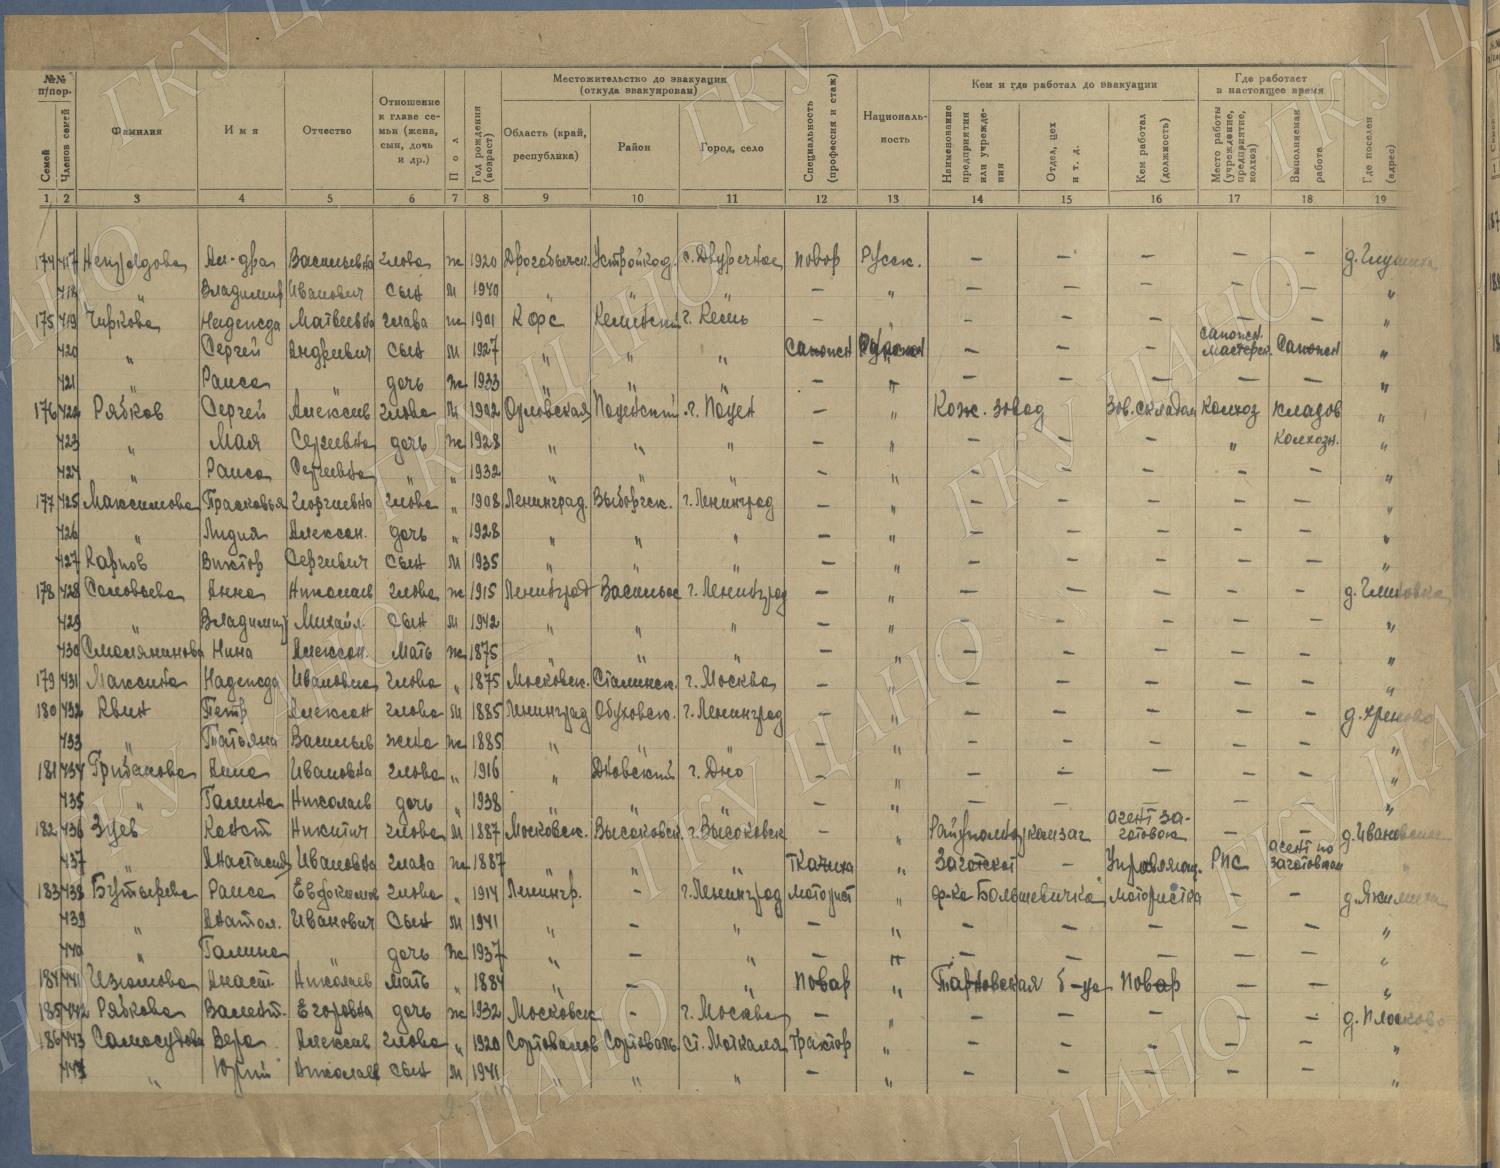 №№ п/пор. | Фамилия | Имя | Отчество | Отношение к главе семьи (жена, сын, дочь и др.) | Пол | Год рождения (возраст) | Местожительство до эвакуации (откуда эвакуирован) | Специальность (профессия и стаж) | Националь-ность | Кем и где работал до эвакуации | Где работает в настоящее время | Где поселен (адрес)
Семей | Членов семей | Область (край, республика) | Район | Город, село | Наименование предприятия или учрежде-ния | Отдел, цех и т. д. | Кем работал (должность) | Место работы (учреждение, предприятие, колхоз) | Выполняемая работа
1 2 3 4 5 6 7 8 9 10 11 12 13 14 15 16 17 18 19
174 417 Ал-дра Васильевна глова ж 1920 с. Двуречное повор Русск. — — — — — д. Глушиха
418 „ Владимир Иванович сын м 1940 „ „ „ — „ — — — — — „
175 419 Чиркова Надежда Матвеевна глава ж 1901 КФС Кемский г. Кемь — — — — — — „
420 „ Сергей Андреевич сын м 1927 „ „ „ сапожн — — — сапожн. мастерск. сапожн „
421 „ Раиса „ дочь ж 1933 „ „ „ — „ — — — — — „
176 422 Рябков Сергей Алексеев глова м 1902 Орловская Поченский г. Почеп — „ Кож. завод Зов. складом колхоз кладов „
423 „ Мая Сергеевна дочь ж 1928 „ „ „ — „ — — — „ колхозн. „
424 „ Раиса Сергеевна „ „ 1932 „ „ „ — „ — — — — — „
177 425 Максимова Прасковья Георгиевна глова „ 1908 Ленинград. Выборгск. г. Ленинград — „ — — — — — „
426 „ Лидия Алексан. дочь „ 1928 „ „ „ — „ — — — — — „
427 Карпов Виктор Сергеевич сын м 1935 „ „ „ — „ — — — — — „
178 428 Соловьева Анна Николаев глова ж 1915 Ленинград Васильев г. Ленинград — „ — — — — —
429 „ Владимир Михайл. сын м 1942 „ „ „ — „ — — — — — „
430 Смолянинова Нина Алексан. мать ж 1875 „ „ „ — „ — — — — — „
179 431 Максина Надежда Ивановна глова „ 1875 Московск. Сталинск. г. Москва — „ — — — — — „
180 432 Квин Петр Алексан глова м 1885 Ленинград Обуховск. г. Ленинград — „ — — — — — д. Хреново
433 „ Татьяна Васильев жена ж 1885 „ „ „ — „ — — — — — „
181 434 Грибанова Анна Ивановна глова „ 1916 „ Дновский г. Дно — „ — — — — — „
435 „ Галина Николаев дочь „ 1938 „ „ „ — „ — — — — — „
182 436 Зуев Конст Никитич глова м 1887 Московск. Высоковск. г. Высоковск — „ агент за-готовок — —
437 „ Анастасия Ивановна глава ж 1887 „ „ „ ткачиха „ Заготскот — РИС агент по заготовкам „
183 438 Бутырева Раиса Евдоким глова „ 1914 Ленингр. — г. Ленинград моторист „ ф-ка Большевичка мотористка — — д. Якимиха
439 „ Анатол. Иванович сын м 1941 „ — „ — „ — — — — — „
440 „ Галина „ дочь ж 1937 „ — „ — „ — — — — — „
184 441 Изюмова Анаст. Николаев мать „ 1884 „ — „ повар „ Тарновская б-ца повар — — „
185 442 Рябкова Валент. Егоровна дочь ж 1932 Московск — г. Москва — „ — — — — — д. Плосково
186 443 Вера Алексеев глова „ 1920 Сортовалов Сортоваль ст. Маткаля трактор „ — — — — — „
444 „ Юрий Николаев сын м 1941 „ „ „ — „ — — — — — „
ГКУ ЦАНО